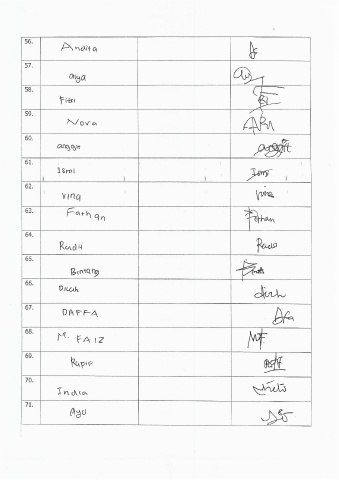 56. Andita
57. aiya
58. Fitri
59. Nova ARN
60. anggit anggit
61. Ismi Ismi
62. vina vina
63. Farhan Farhan
64. Radit Radit
65. Bintang
66. Dicah dicah
67. DAFFA Dfa
68. M. FAIZ MF
69. Rapip
70. Indira
71. Ayu